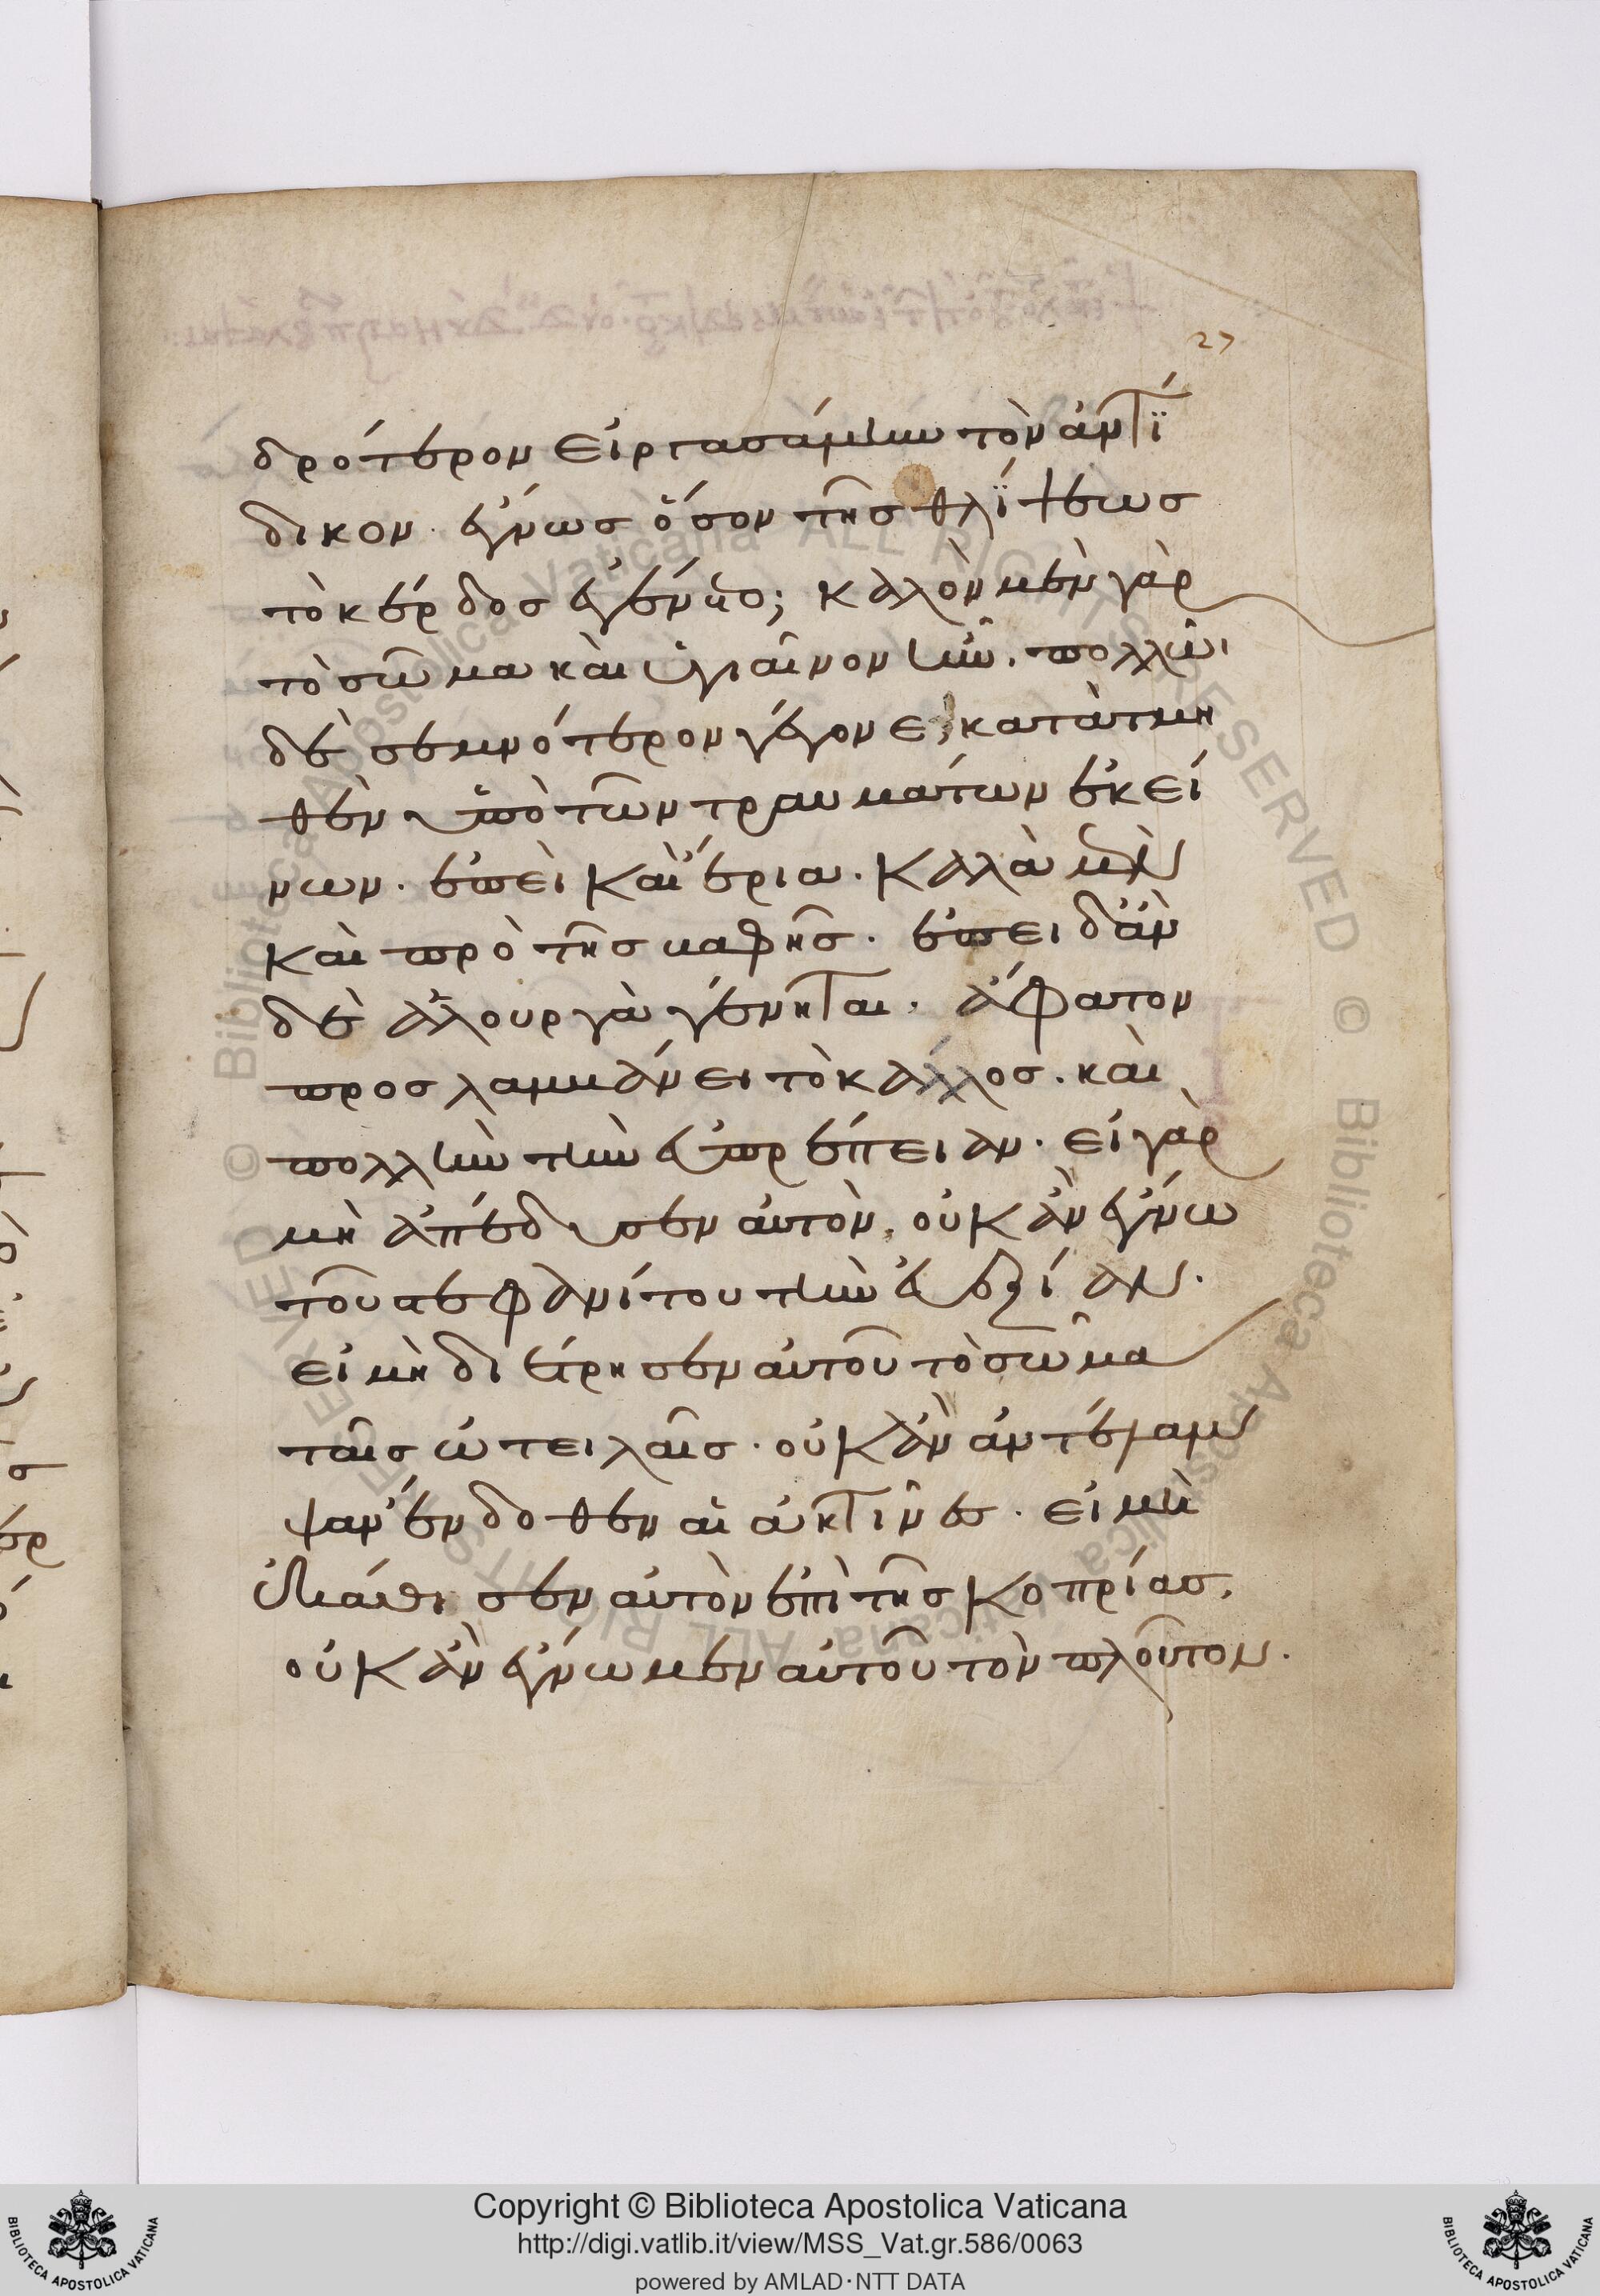 27
δρότερον εἰργασάμην τὸν ἀντί
δικον. ἔγνως ὅσον τῆς θλίψεως
τὸ κέρδος ἐγένετο; καλὸν μὲν γὰρ
τὸ σῶμα καὶ ὑγιαῖνον ἦν. πολλῶι
δὲ σεμνότερον γέγονε, κατατμη
θὲν ὑπὸ τῶν τραυμάτων ἐκεί
νων. ἐπεὶ καὶ ἔρια. καλὰ μὲν
καὶ πρὸ τῆς βαφῆς. ἐπειδὰν
δὲ ἁλουργὰ γένηται. ἄφατον
προσλαμβάνει τὸ κάλλος. καὶ
πολλὴν τὴν εὐπρέπειαν. εἰ γὰρ
μὴ ἀπέδυσεν αὐτὸν, οὐκ ἂν ἔγνω
τοῦ στεφανίτου τὴν εὐεξίαν.
εἰ μὴ διέτρησεν αὐτοῦ τὸ σῶμα
ταῖς ὠτειλαῖς. οὐκ ἂν ἀντέλαμ
ψαν ἔνδοθεν αἱ ἀκτῖνες. εἰ μὴ
ἐκάθισεν αὐτὸν ἐπὶ τῆς κοπρίας,
οὐκ ἂν ἔγνωμεν αὐτοῦ τὸν πλοῦτον.
Copyright © Biblioteca Apostolica Vaticana
http://digi.vatlib.it/view/MSS_Vat.gr.586/0063
powered by AMLAD·NTT DATA
BIBLIOTECA APOSTOLICA VATICANA
BIBLIOTECA APOSTOLICA VATICANA